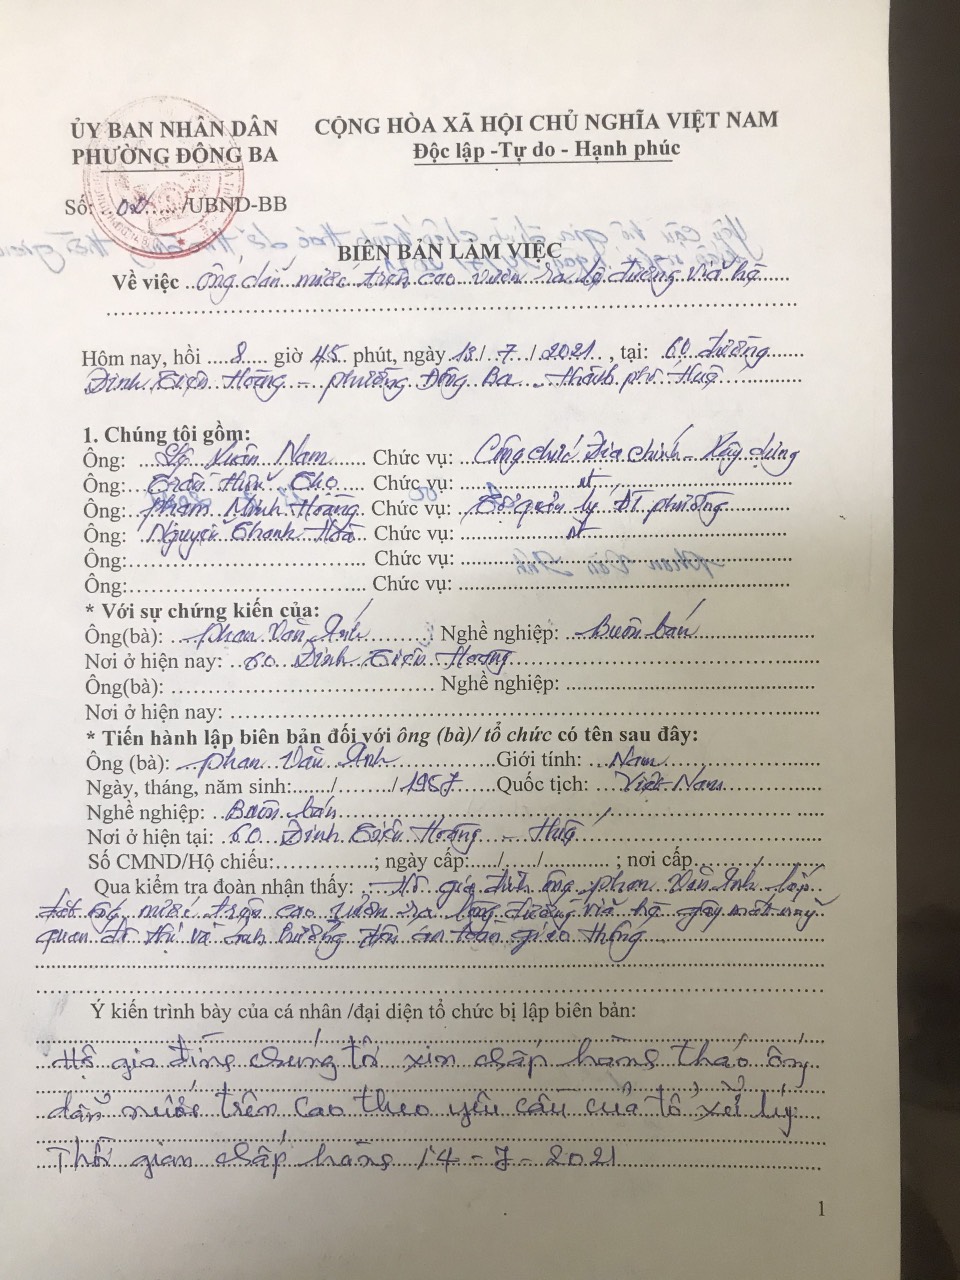 ỦY BAN NHÂN DÂN
PHƯỜNG ĐÔNG BA
CỘNG HÒA XÃ HỘI CHỦ NGHĨA VIỆT NAM
Độc lập -Tự do - Hạnh phúc
Số: ......... /UBND-BB
BIÊN BẢN LÀM VIỆC
Về việc ống dẫn nước trên cao vươn ra lòng đường vỉa hè
Hôm nay, hồi ....8.... giờ 45 phút, ngày 12/ 7 / 2021 , tại: 60 đường
Đinh Tiên Hoàng - phường Đông Ba - thành phố Huế
1. Chúng tôi gồm:
Ông: Xuân Nam Chức vụ: Công chức Địa chính - Xây dựng
Ông: Trần Hữu Thọ Chức vụ: nt
Ông: Phạm Minh Hoàng Chức vụ: Tổ quản lý ĐT phường
Ông: Nguyễn Thanh Chức vụ: nt
Ông: Chức vụ:
Ông: Chức vụ:
* Với sự chứng kiến của:
Ông(bà): Phan Văn Ánh Nghề nghiệp: Buôn bán
Nơi ở hiện nay: 60 Đinh Tiên Hoàng
Ông(bà): Nghề nghiệp:
Nơi ở hiện nay:
* Tiến hành lập biên bản đối với ông (bà)/ tổ chức có tên sau đây:
Ông (bà): Phan Văn Ánh Giới tính: Nam
Ngày, tháng, năm sinh:....../......../1957 Quốc tịch: Việt Nam
Nghề nghiệp: Buôn bán
Nơi ở hiện tại: 60 Đinh Tiên Hoàng - Huế
Số CMND/Hộ chiếu:...............; ngày cấp:...../...../........... ; nơi cấp
Qua kiểm tra đoàn nhận thấy: Hộ gia đình ông Phan Văn Ánh lắp
đặt ống nước trên cao vươn ra lòng đường vỉa hè gây mất mỹ
quan đô thị và ảnh hưởng đến an toàn giao thông
Ý kiến trình bày của cá nhân /đại diện tổ chức bị lập biên bản:
Hộ gia đình chúng tôi xin chấp hành tháo ống
dẫn nước trên cao theo yêu cầu của tổ xử lý
Thời gian chấp hành 14 - 7 - 2021
1